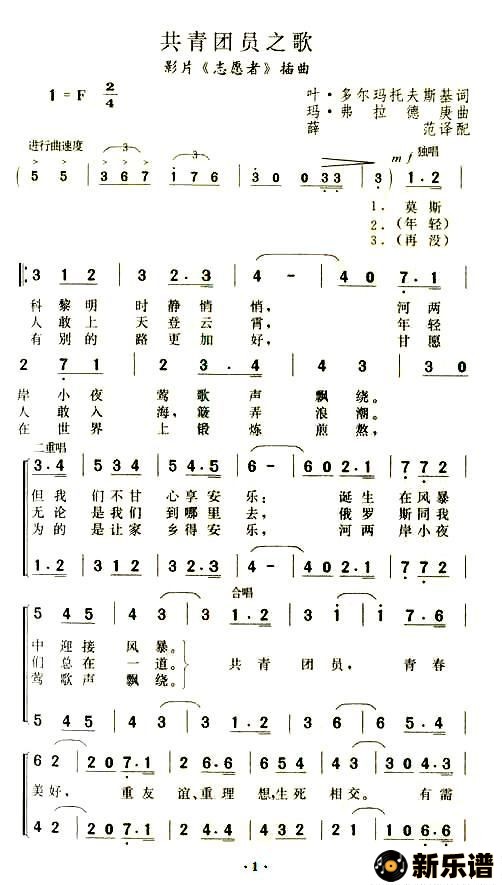 共青团员之歌
影片《志愿者》插曲
1=F 2/4
叶·多尔玛托夫斯基词
玛·弗拉德庚曲
薛范译配
进行曲速度
mf 独唱
( 5 5 | 3 6 7 1 7 6 | 3 0 0 3 3 | 3 ) 1·2 |
1. 莫斯
2.(年轻)
3.(再没)
3 1 2 | 3 2·3 | 4 - | 4 0 7·1 |
科黎明 时静悄 悄, 河两
人敢上 天登云 霄, 年轻
有别的 路更加 好, 甘愿
2 7 1 | 2 3·4 | 4 3 | 3 0
岸小夜 莺歌声飘绕。
人敢入 海,簸弄浪潮。
在世界 上锻炼煎熬,
二重唱
3·4 | 5 3 4 | 5 4·5 | 6 - | 6 0 2·1 | 7 7 2 |
但我们不甘心享安乐; 诞生在风暴
无论是我们到哪里去, 俄罗斯同我
为的是让家乡得安乐, 河两岸小夜
1·2 | 3 1 2 | 3 2·3 | 4 - | 4 0 2·1 | 7 7 2 |
合唱
5 4 5 | 4 3 | 3 1·2 | 3 i | i 7·6 |
中迎接风暴。
们总在一道。 共青团员, 青春
莺歌声飘绕。
5 4 5 | 4 3 | 3 1·2 | 3 3 | 6 5·4 |
6 2 | 2 0 7·1 | 2 6·6 | 6 5 4 | 3 2 | 3 0 4·3 |
美好, 重友谊、重理想,生死相交。 有需
4 2 | 2 0 7·1 | 2 4·4 | 4 3 2 | 2 1 | 1 0 6·6 |
·1·
新乐谱